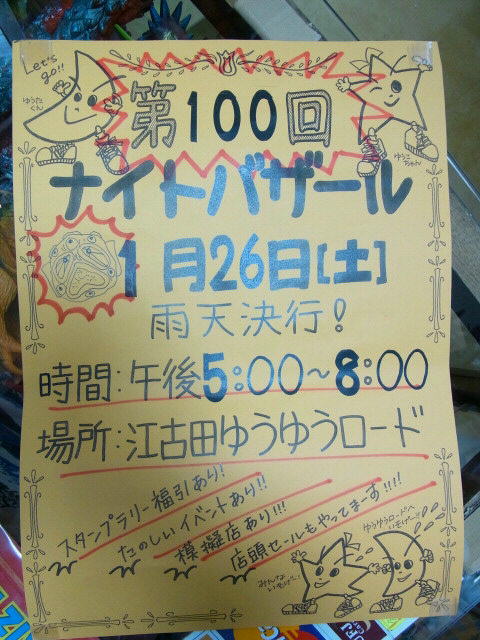 Let's go!!
ゆうたくん
第100回
ゆうこちゃん
ナイトバザール
1月26日[土]
雨天決行!
時間:午後5:00~8:00
場所:江古田ゆうゆうロード
スタンプラリー福引あり!
たのしいイベントあり!!
模擬店あり!!!
店頭セールもやってます!!!!
みんないそげー!
ゆうゆうロードへいそげー!!